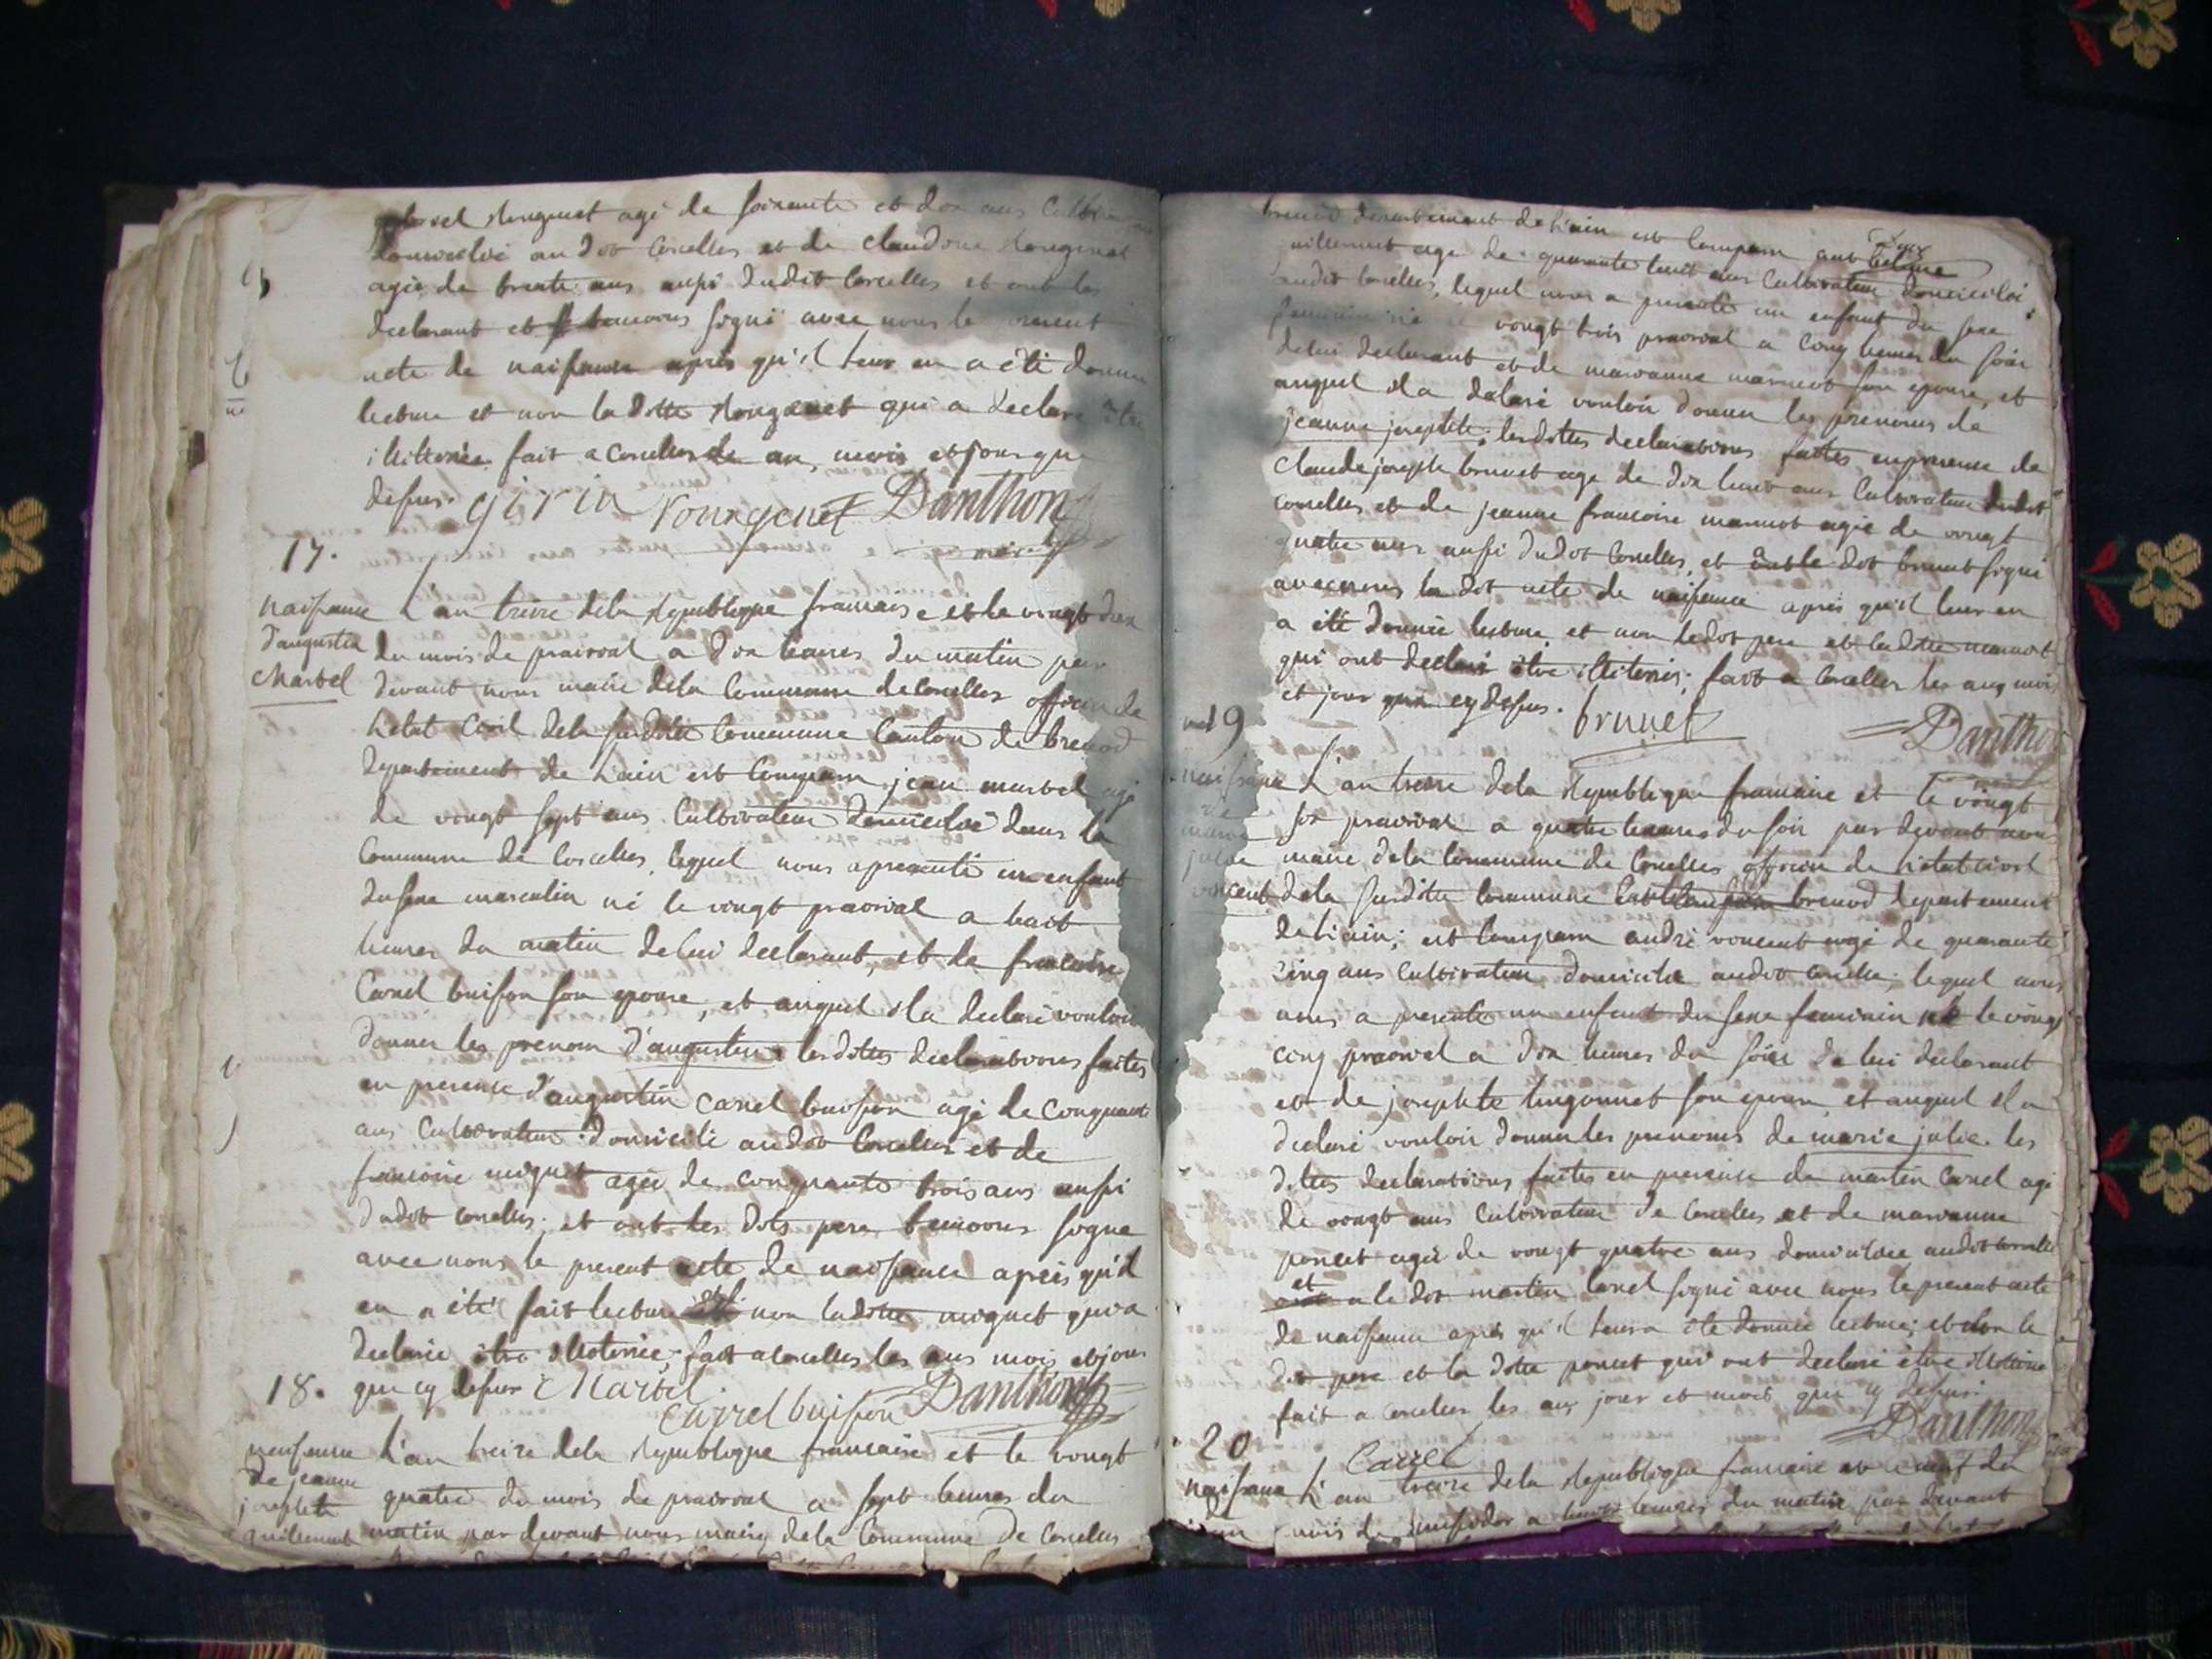 agé de soixante et dix ans
domicilié audit Corcelles et de Claudine
agée de trente ans aussi dudit Corcelles et ont les
declarant et temoins signé avec nous le present
acte de naissance apres qu'il leur en a été donné
lecture et non la ditte qui a declaré être
illiterée fait a Corcelles les an, mois et jour que
dessus. girin Danthon
maire
17.
naissance
d'augustin
Martel
L'an treize dela Republique francaise et le vingt deux
du mois de prairial a dix heures du matin par
devant nous maire dela Commune de Corcelles officier de
l'etat Civil dela susditte Commune Canton de brenod
departement de L'ain est Comparu jean martel agé
de vingt sept ans Cultivateur domicilié dans la
Commune de Corcelles, lequel nous a presenté un enfant
du sexe masculin né le vingt prairial a huit
heures du matin de lui declarant, et de francoise
Carrel buisson son epouse, et auquel il a declaré vouloir
donner les prenom d'augustin les dittes declarations faites
en presence d'augustin Carrel buisson agé de cinquante
ans Cultivateur domicilié audit Corcelles et de
francoise miguet agée de cinquante trois ans aussi
dudit Corcelles; et ont les dits pere temoins signe
avec nous le present acte de naissance apres qu'il
en a été fait lecture et non laditte miguet qui a
declarée être illiterée; fait a Corcelles les ans mois et jour
que cy dessus Martel
Carrel buisson Danthon
18.
naissance
de jeanne
josephte
guillermet
L'an treize dela Republique francaise et le vingt
quatre du mois de prairial a sept heures du
matin par devant nous maire dela Commune de Corcelles
brenod departement de L'ain est Comparu
guillermet agé de quarante huit ans Cultivateur domicilié
audit Corcelles, lequel nous a presenté un enfant du sexe
feminin né le vingt trois prairial a cinq heures du soir
de lui declarant et de marianne marmet son epouse, et
auquel il a declaré vouloir donner les prenoms de
jeanne josephte; les dittes declarations faittes en presence de
Claude joseph brunet agé de dix huit ans Cultivateur dudit
Corcelles et de jeanne francoise marmet agée de vingt
quatre ans aussi dudit Corcelles, et le dit brunet signé
avec nous le dit acte de naissance apres qu'il leur en
a été donnée lecture et non ledit pere et laditte marmet
qui ont declaré être illiterés; fait a Corcelles les an, mois
et jour que cy dessus. brunet
Danthon
19
naissance
de
marie
julie
vincent
L'an treize dela Republique francaise et le vingt
six prairial a quatre heures du soir par devant nous
maire dela Commune de Corcelles officier de l'etat civil
dela susditte Commune brenod departement
de L'ain; est Comparu andré vincent agé de quarante
cinq ans Cultivateur domicilié audit Corcelles, lequel
nous a presenté un enfant du sexe feminin né le vingt
cinq prairial a dix heures du soir de lui declarant
et de josephte son epouse et auquel il a
declaré vouloir donner les prenoms de marie julie les
dittes declarations faites en presence de martin Carrel agé
de vingt ans Cultivateur de Corcelles et de marianne
poncet agée de vingt quatre ans domiciliée audit Corcelles
et a le dit martin Carrel signé avec nous le present acte
de naissance apres qu'il leur a été donnée lecture; et non le
dit pere et la ditte poncet qui ont declaré être
fait a Corcelles les an, jour et mois que cy dessus.
Danthon
Carrel
20
naissance
L'an treize dela Republique francaise et le neuf du
mois de messidor a heures du matin par devant